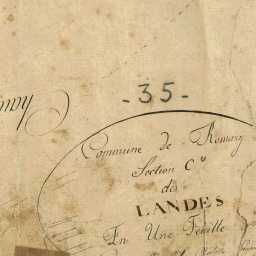 - 35 -
Commune de Romazy
Section C.
des
LANDES
En Une Feuille